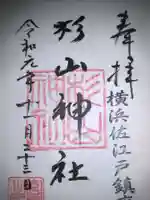 奉拝
横浜佐江戸鎮
杉山神社
令和元年十一月二十三日